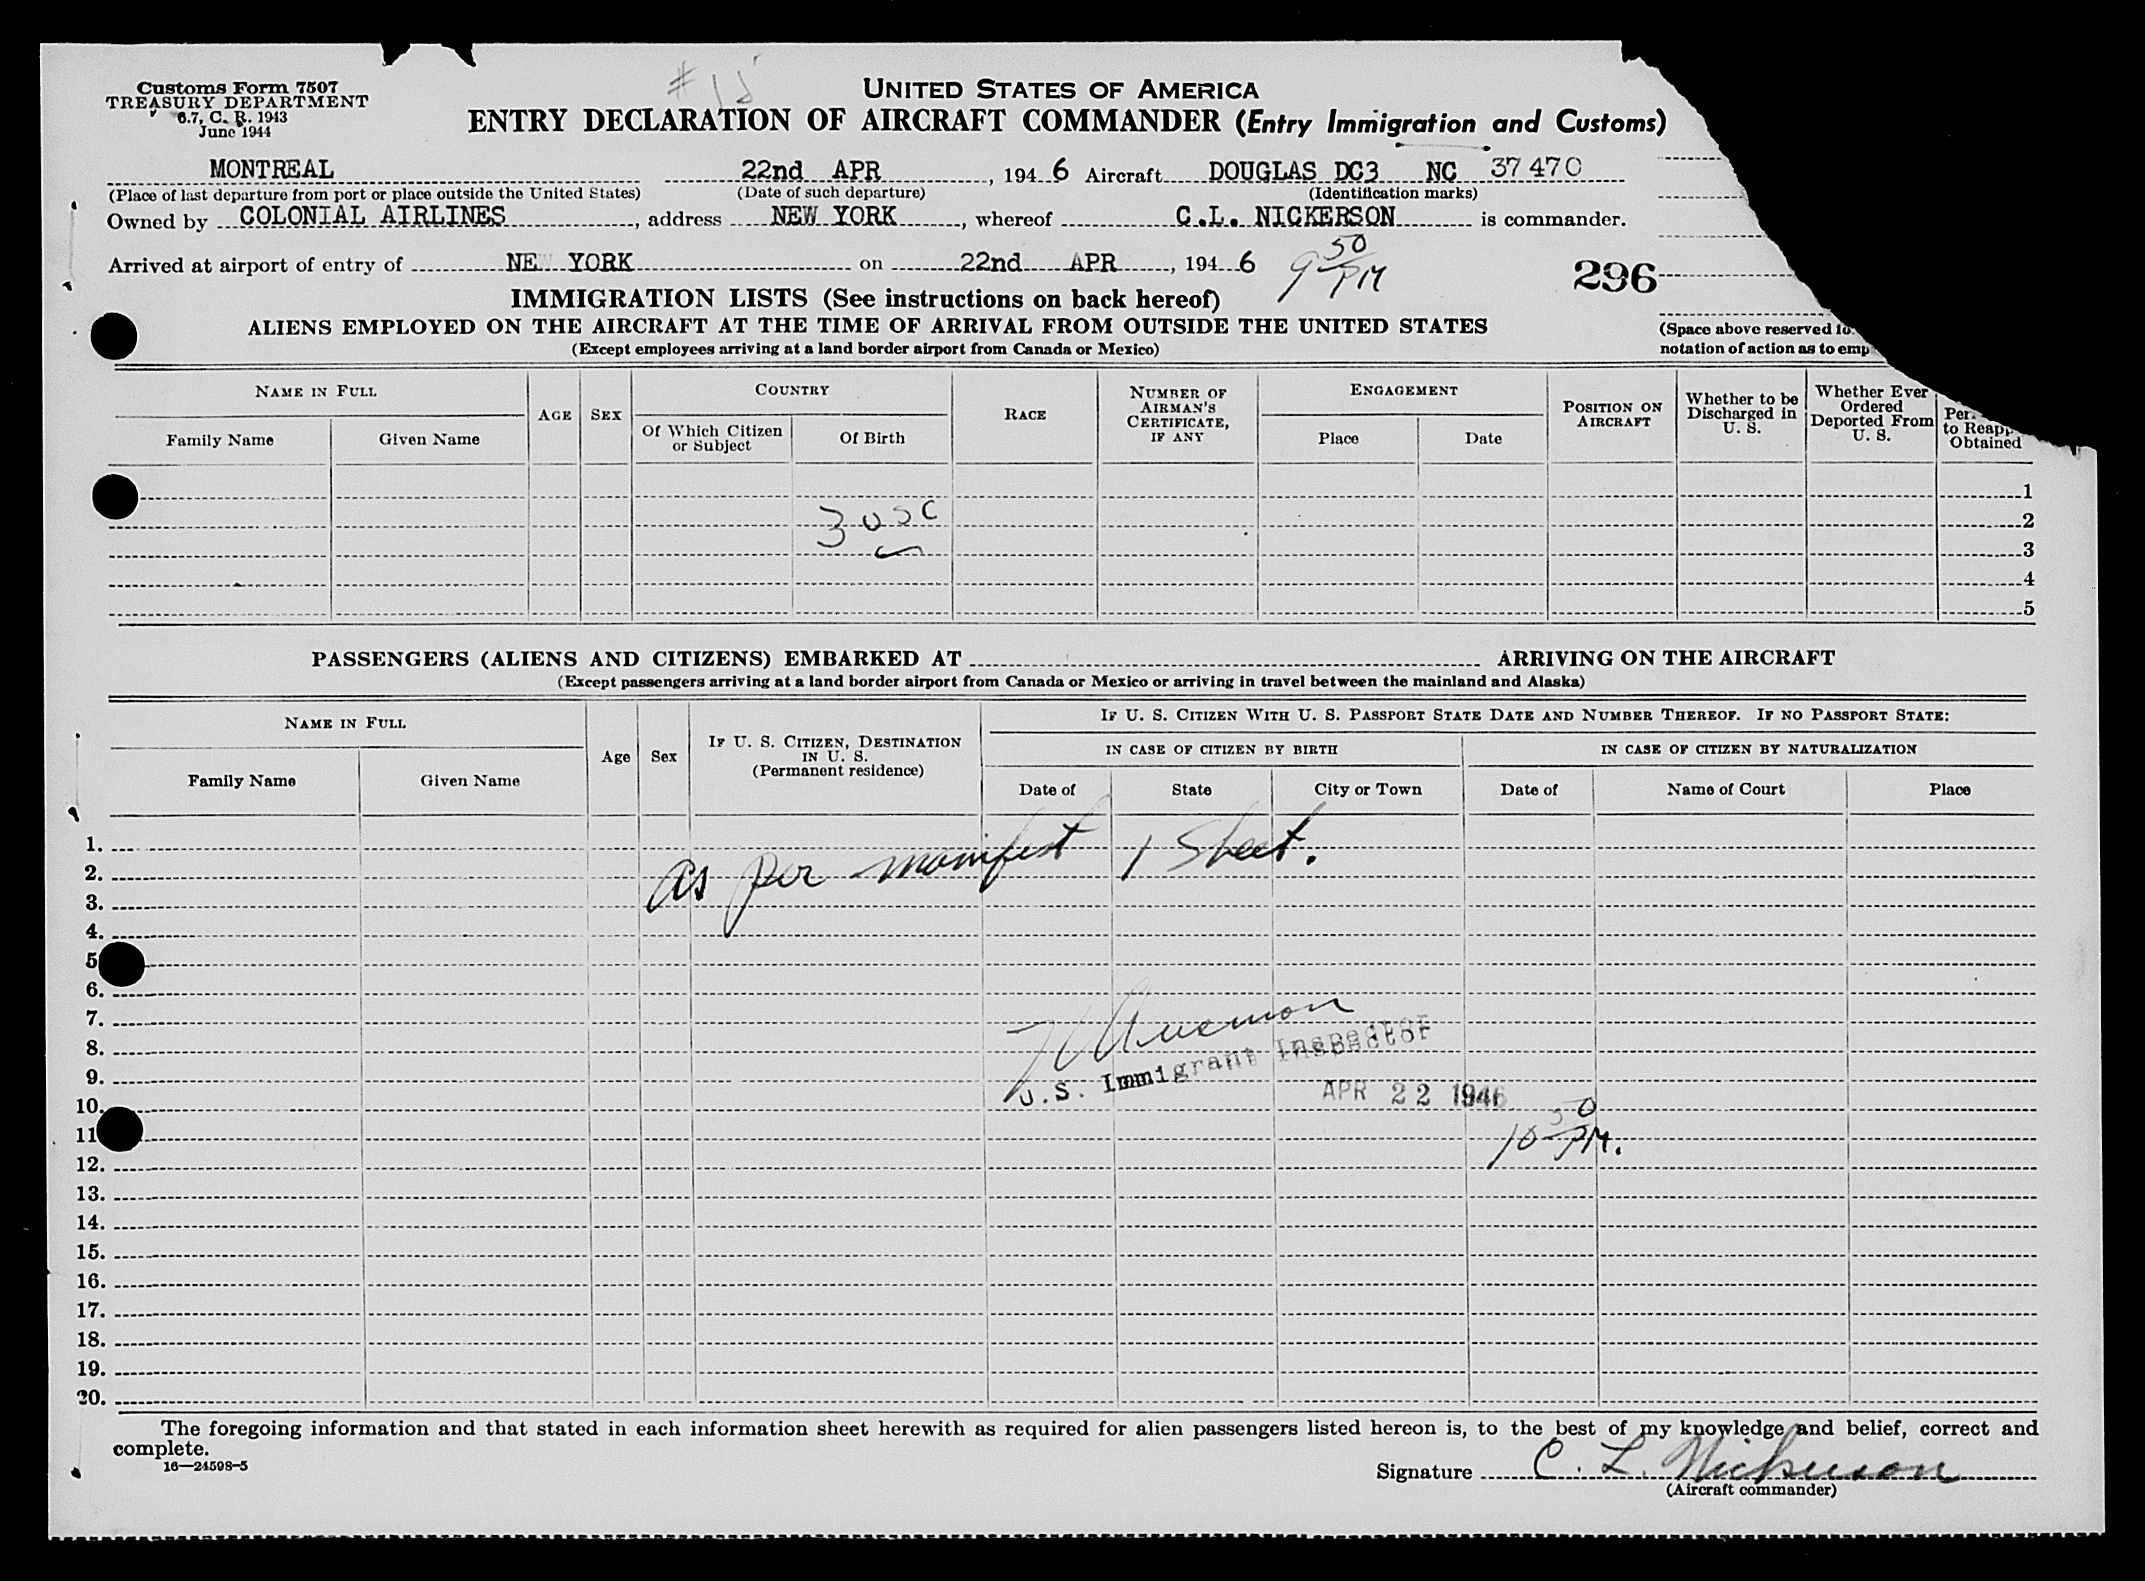 Customs Form 7507
TREASURY DEPARTMENT
6.7, C. R. 1943
June 1944
# 15
UNITED STATES OF AMERICA
ENTRY DECLARATION OF AIRCRAFT COMMANDER (Entry Immigration and Customs)
MONTREAL 22nd APR, 194 6 Aircraft DOUGLAS DC3 NC 37470
(Place of last departure from port or place outside the United States) (Date of such departure) (Identification marks)
Owned by COLONIAL AIRLINES, address NEW YORK, whereof C.L. NICKERSON is commander.
Arrived at airport of entry of NEW YORK on 22nd APR, 194 6 9 50 PM
296
IMMIGRATION LISTS (See instructions on back hereof)
ALIENS EMPLOYED ON THE AIRCRAFT AT THE TIME OF ARRIVAL FROM OUTSIDE THE UNITED STATES
(Except employees arriving at a land border airport from Canada or Mexico)
(Space above reserved
notation of action as to emp
NAME IN FULL
Family Name
Given Name
AGE
SEX
COUNTRY
Of Which Citizen or Subject
Of Birth
RACE
NUMBER OF AIRMAN'S CERTIFICATE, IF ANY
ENGAGEMENT
Place
Date
POSITION ON AIRCRAFT
Whether to be Discharged in U. S.
Whether Ever Ordered Deported From U. S.
Per
to Reapp
Obtained
1
2
3
4
5
3 USC
PASSENGERS (ALIENS AND CITIZENS) EMBARKED AT ARRIVING ON THE AIRCRAFT
(Except passengers arriving at a land border airport from Canada or Mexico or arriving in travel between the mainland and Alaska)
NAME IN FULL
Family Name
Given Name
Age
Sex
IF U. S. CITIZEN, DESTINATION IN U. S.
(Permanent residence)
IF U. S. CITIZEN WITH U. S. PASSPORT STATE DATE AND NUMBER THEREOF. IF NO PASSPORT STATE:
IN CASE OF CITIZEN BY BIRTH
IN CASE OF CITIZEN BY NATURALIZATION
Date of
State
City or Town
Date of
Name of Court
Place
1.
2.
3.
4.
5
6.
7.
8.
9.
10.
11
12.
13.
14.
15.
16.
17.
18.
19.
20.
as per manifest 1 sheet.
U.S. Immigrant Inspector
APR 22 1946
10 50 PM.
The foregoing information and that stated in each information sheet herewith as required for alien passengers listed hereon is, to the best of my knowledge and belief, correct and
complete.
16—24598-5
Signature C. L. Nickerson
(Aircraft commander)